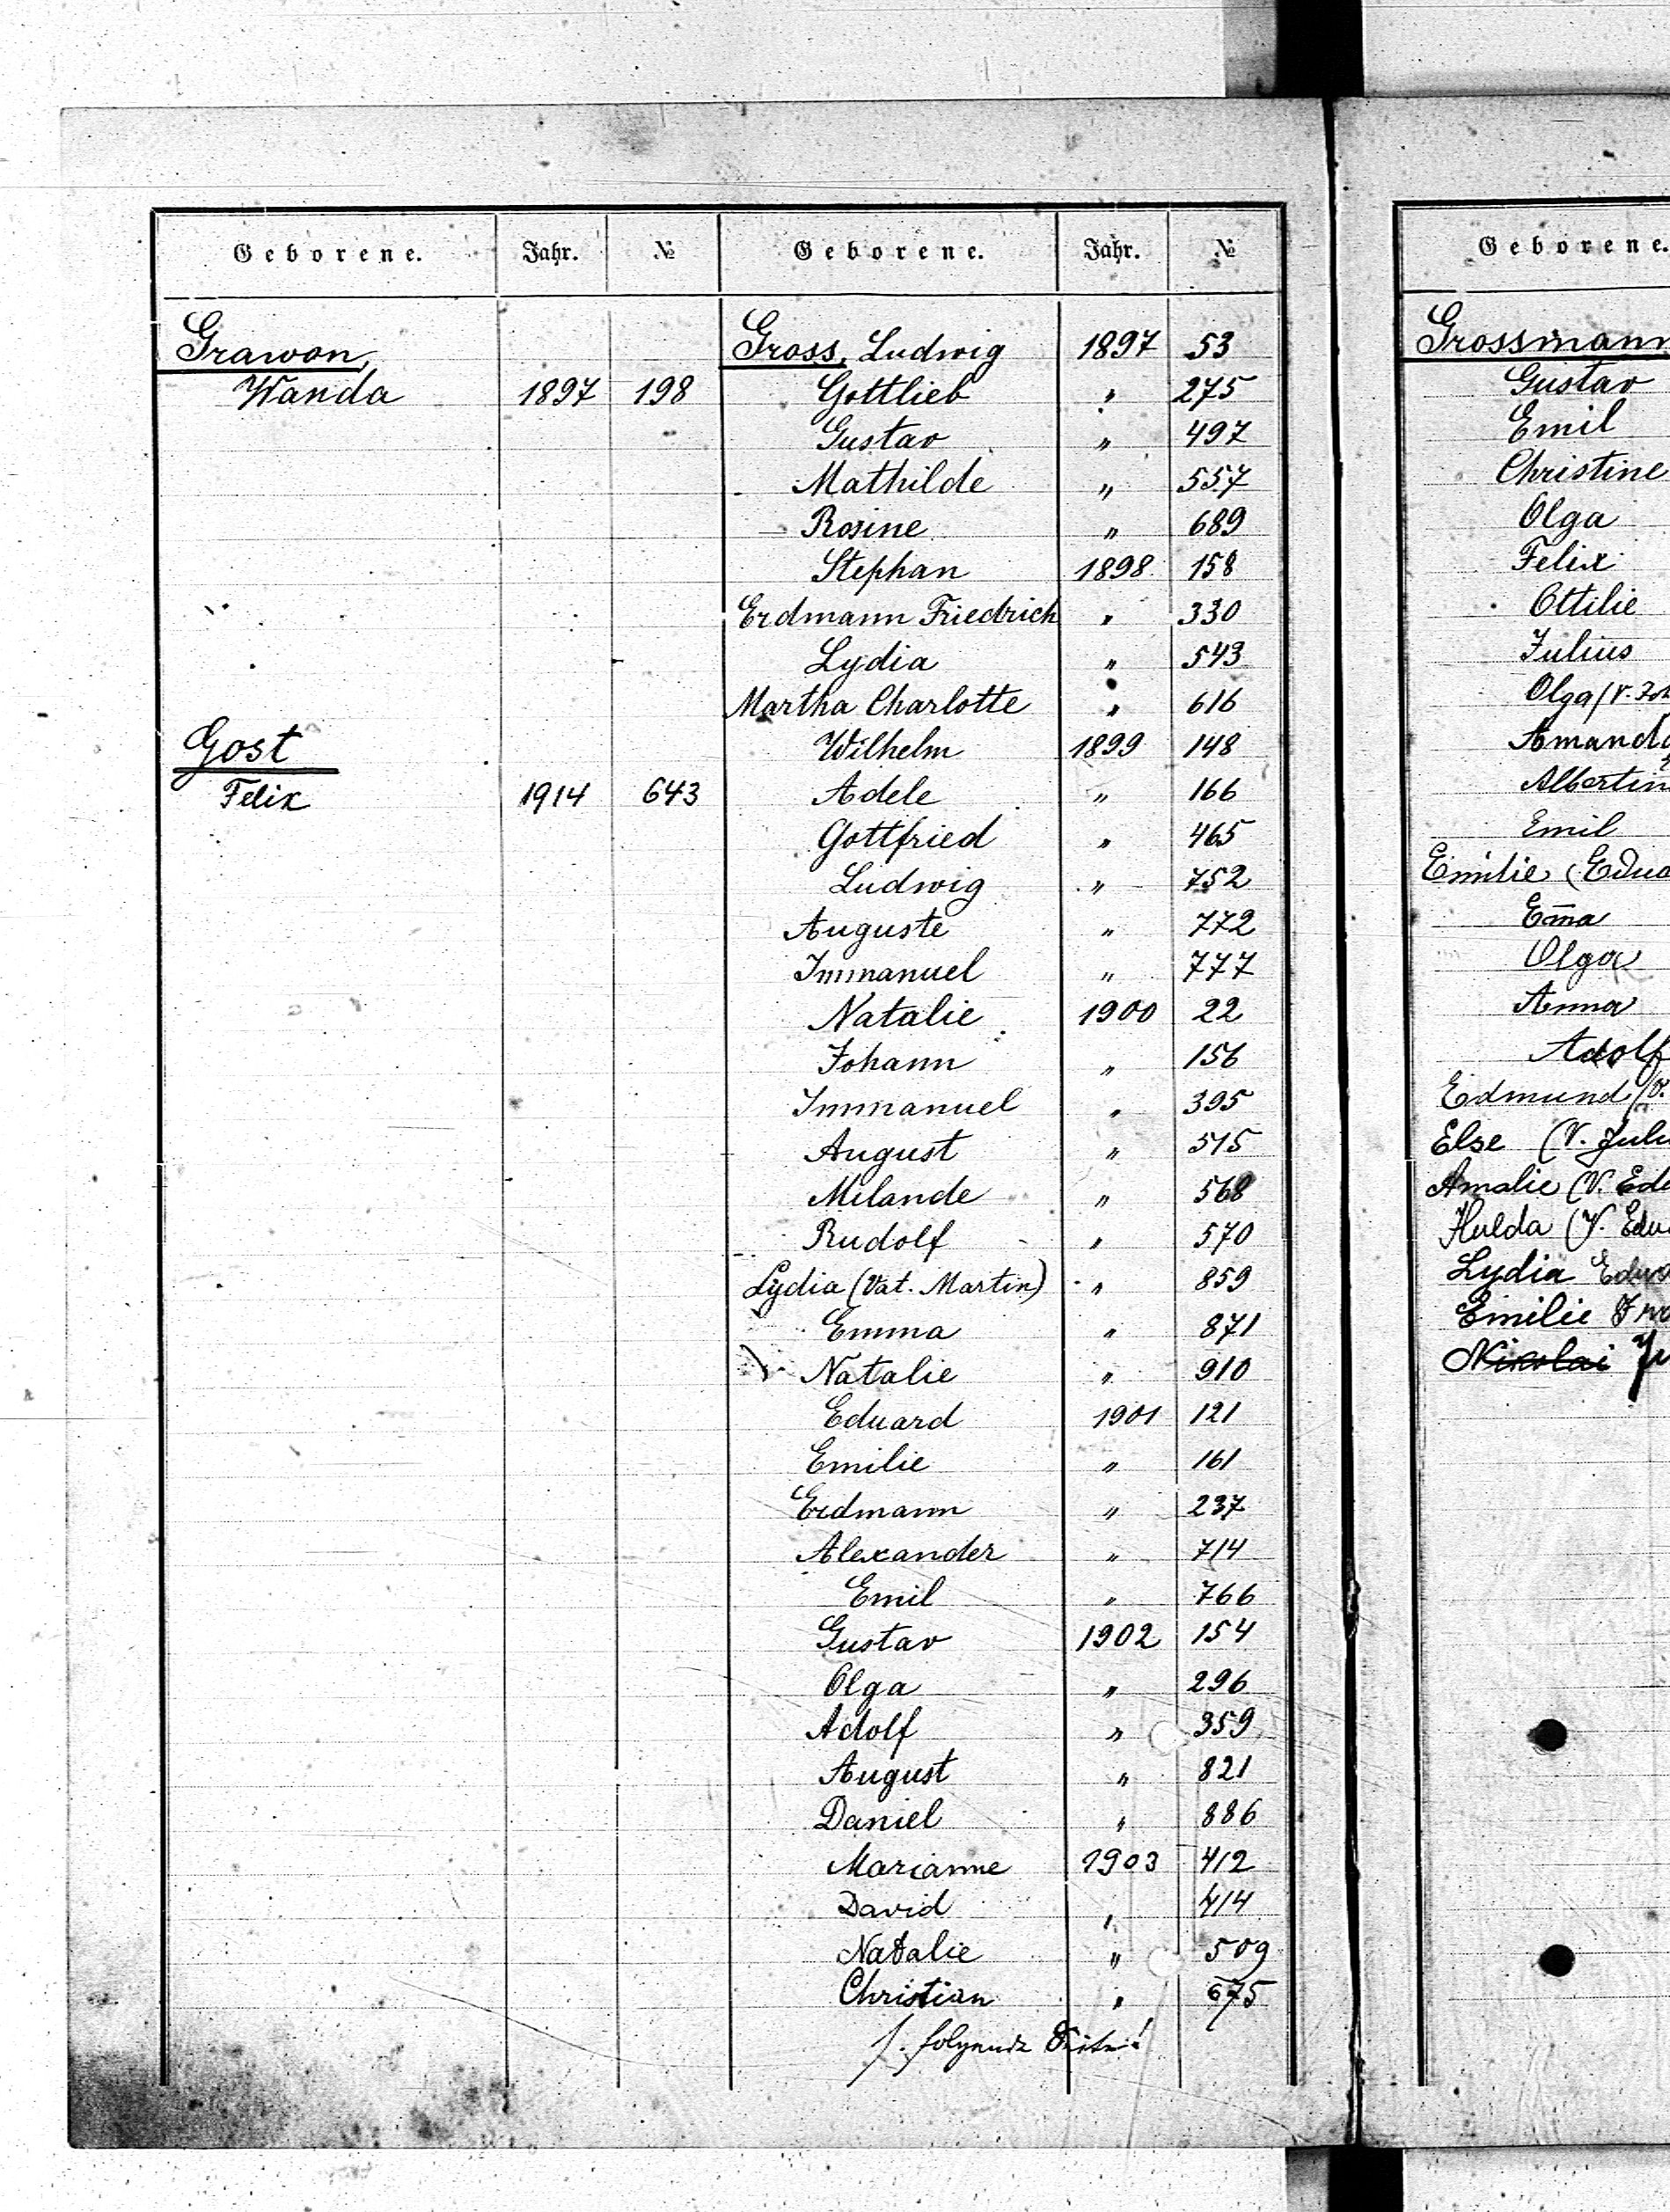 Geborene. Jahr. №
Grawon,
Wanda 1897 198
Gost
Felix 1914 643
Geborene. Jahr. №
Gross, Ludwig 1897 53
Gottlieb " 275
Gustav " 497
Mathilde " 557
Rosine " 689
Stephan 1898 158
Erdmann Friedrich " 330
Lydia " 543
Martha Charlotte " 616
Wilhelm 1899 148
Adele " 166
Gottfried " 465
Ludwig " 752
Auguste " 772
Immanuel " 777
Natalie 1900 22
Johann " 156
Immanuel " 395
August " 515
Milande " 568
Rudolf " 570
Lydia (Vat. Martin) " 859
Emma " 871
Natalie " 910
Eduard 1901 121
Emilie " 161
Erdmann " 237
Alexander " 714
Emil " 766
Gustav 1902 154
Olga " 296
Adolf " 359
August " 821
Daniel " 886
Marianne 1903 412
David " 414
Natalie " 509
Christian " 675
s. folgende Seite!
Geborene.
Grossmann
Gustav
Emil
Christine
Olga
Felix
Ottilie
Julius
Olga (V. Joh
Amanda
Albertin
Emil
Emilie (Edua
Em̄a
Olga
Anna
Adolf
Edmund (V.
Else (V. Juli
Amalie (V. Edu
Hulda (V. Edu
Lydia Edua
Emilie
Nikolai